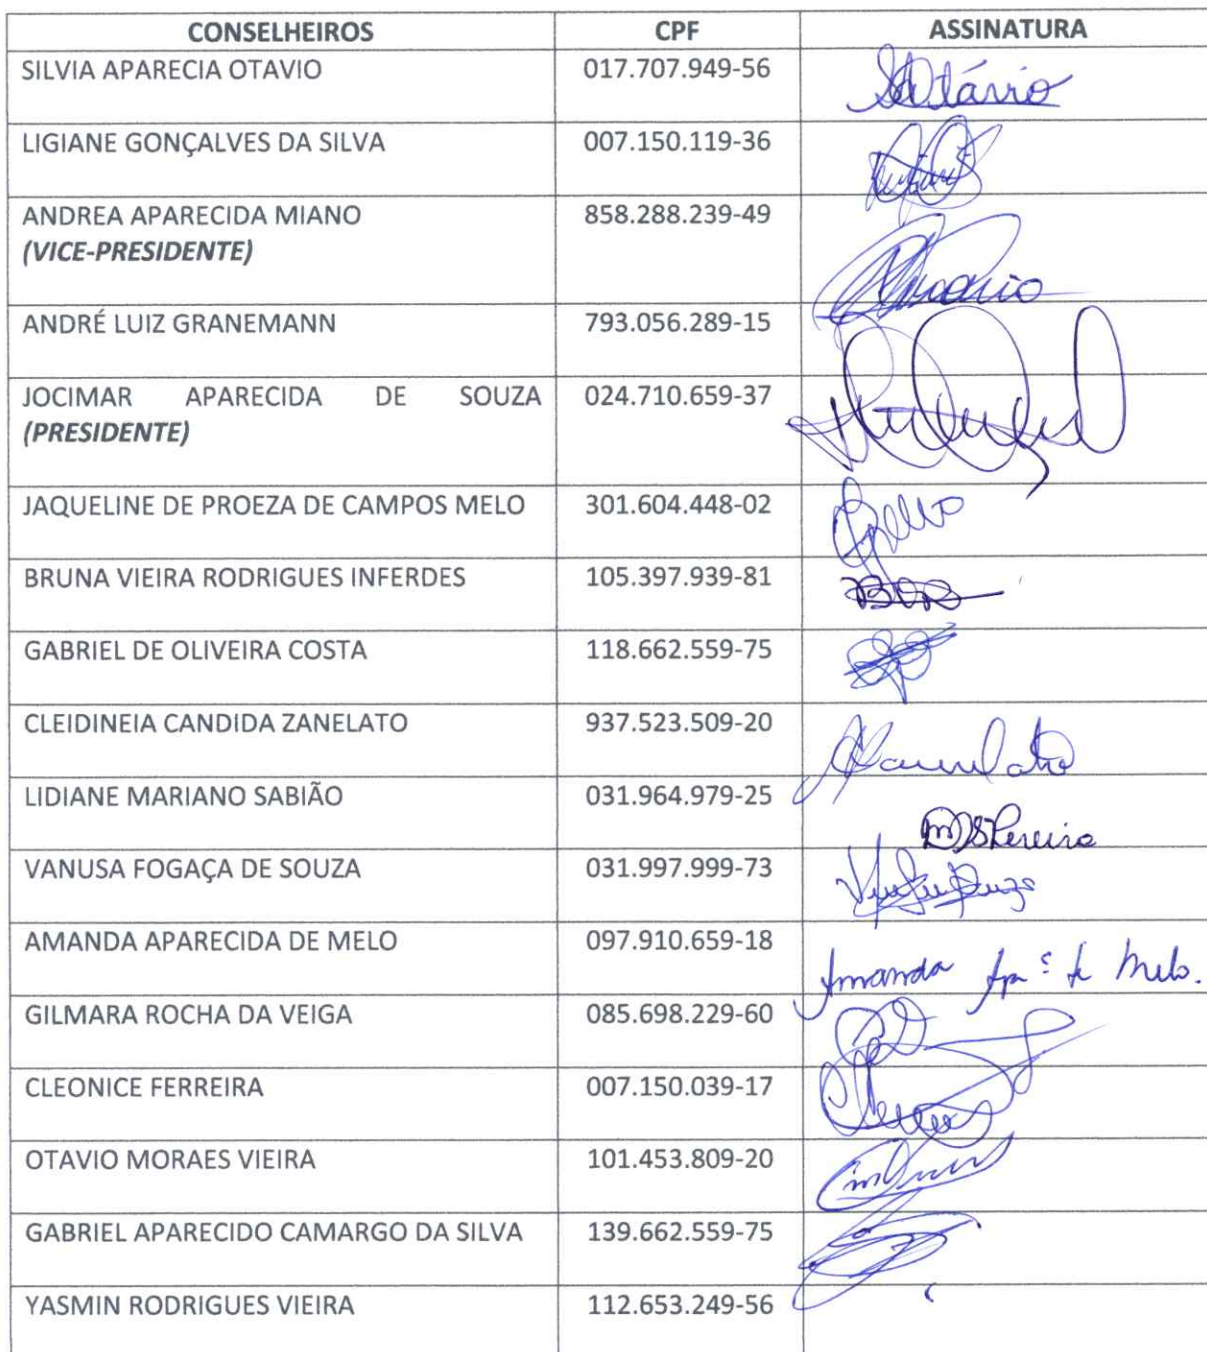 CONSELHEIROS CPF ASSINATURA
SILVIA APARECIA OTAVIO 017.707.949-56 SAOtávio
LIGIANE GONÇALVES DA SILVA 007.150.119-36
ANDREA APARECIDA MIANO 858.288.239-49
(VICE-PRESIDENTE)
ANDRÉ LUIZ GRANEMANN 793.056.289-15
JOCIMAR APARECIDA DE SOUZA 024.710.659-37
(PRESIDENTE)
JAQUELINE DE PROEZA DE CAMPOS MELO 301.604.448-02
BRUNA VIEIRA RODRIGUES INFERDES 105.397.939-81
GABRIEL DE OLIVEIRA COSTA 118.662.559-75
CLEIDINEIA CANDIDA ZANELATO 937.523.509-20
LIDIANE MARIANO SABIÃO 031.964.979-25
VANUSA FOGAÇA DE SOUZA 031.997.999-73
AMANDA APARECIDA DE MELO 097.910.659-18 Amanda Apª de Melo.
GILMARA ROCHA DA VEIGA 085.698.229-60
CLEONICE FERREIRA 007.150.039-17
OTAVIO MORAES VIEIRA 101.453.809-20
GABRIEL APARECIDO CAMARGO DA SILVA 139.662.559-75
YASMIN RODRIGUES VIEIRA 112.653.249-56